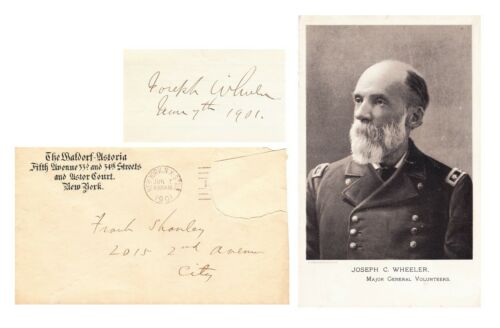 Joseph Wheeler
June 7th 1901.
The Waldorf-Astoria
Fifth Avenue 33d and 34th Streets
and Astor Court.
New York.
NEW YORK, N.Y.
JUN 7
1901
Frank Shanley
2015 2nd Avenue
City
JOSEPH C. WHEELER,
MAJOR GENERAL VOLUNTEERS.